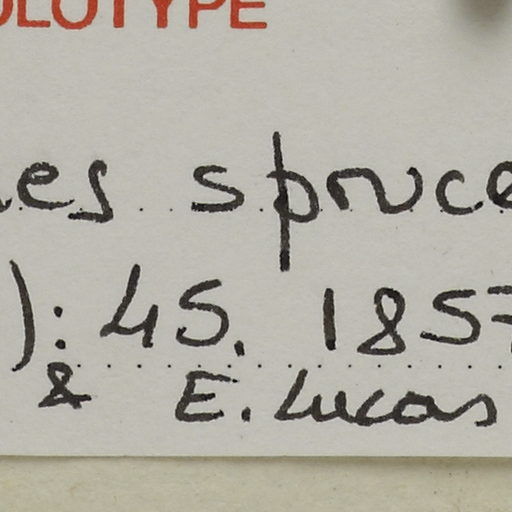 OLOTYPE
es spruce
): 45. 1857
& E. Lucas